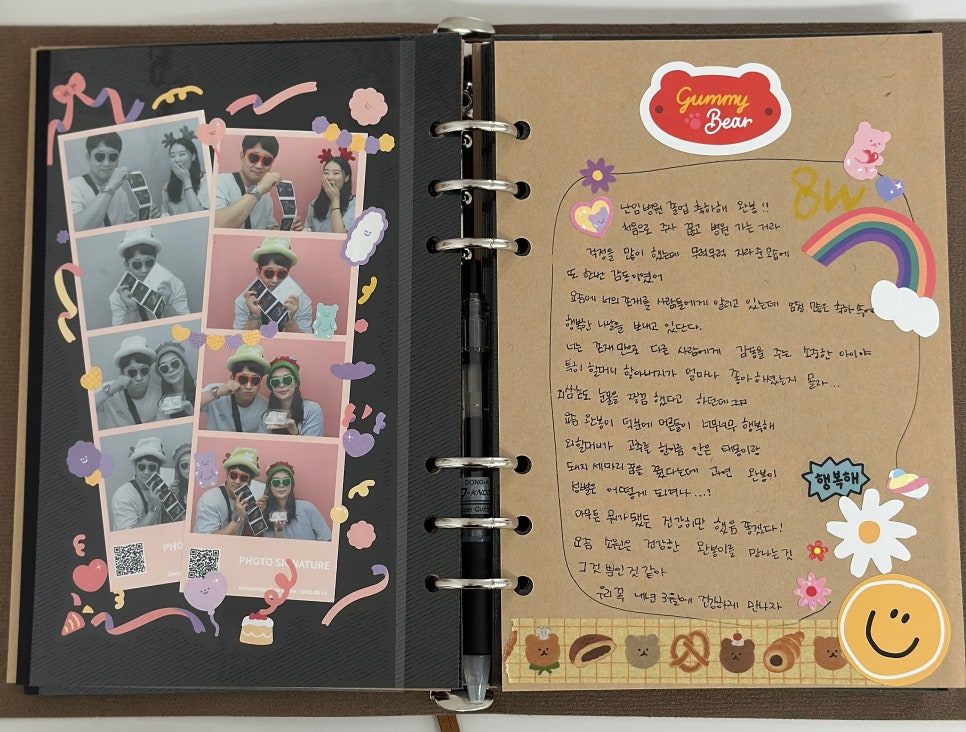 PHO
PHOTO SIGNATURE
Gummy
Bear
8W
난임병원 졸업 축하해 완봉!!
처음으로 주차 꽂고 병원 가는 거라
걱정을 많이 했는데 무럭무럭 자라준 모습에
또 한번 감동이였어
요즘에 너의 존재를 사람들에게 알리고 있는데 엄청 많은 축하 속에
행복한 나날을 보내고 있단다.
너는 존재만으로 다른 사람에게 감동을 주는 소중한 아이야
특히 할머니 할아버지가 얼마나 좋아하셨는지 몰라...
외삼촌도 눈물을 찔끔 했다고 하던데ㅋㅋ
요즘 완봉이 덕분에 어른들이 너무너무 행복해
외할머니가 고추를 한아름 안은 태몽이랑
돼지 세마리 꿈을 꿨다는데 과연 완봉이
성별은 어떻게 되려나...?
아무튼 뭐가 됐든 건강하기만 했음 좋겠다!
요즘 소원은 건강한 완봉이를 만나는 것
그것 뿐인 것 같아
우리 꼭 내년 3월에 건강하게 만나자
행복해
DONG-A